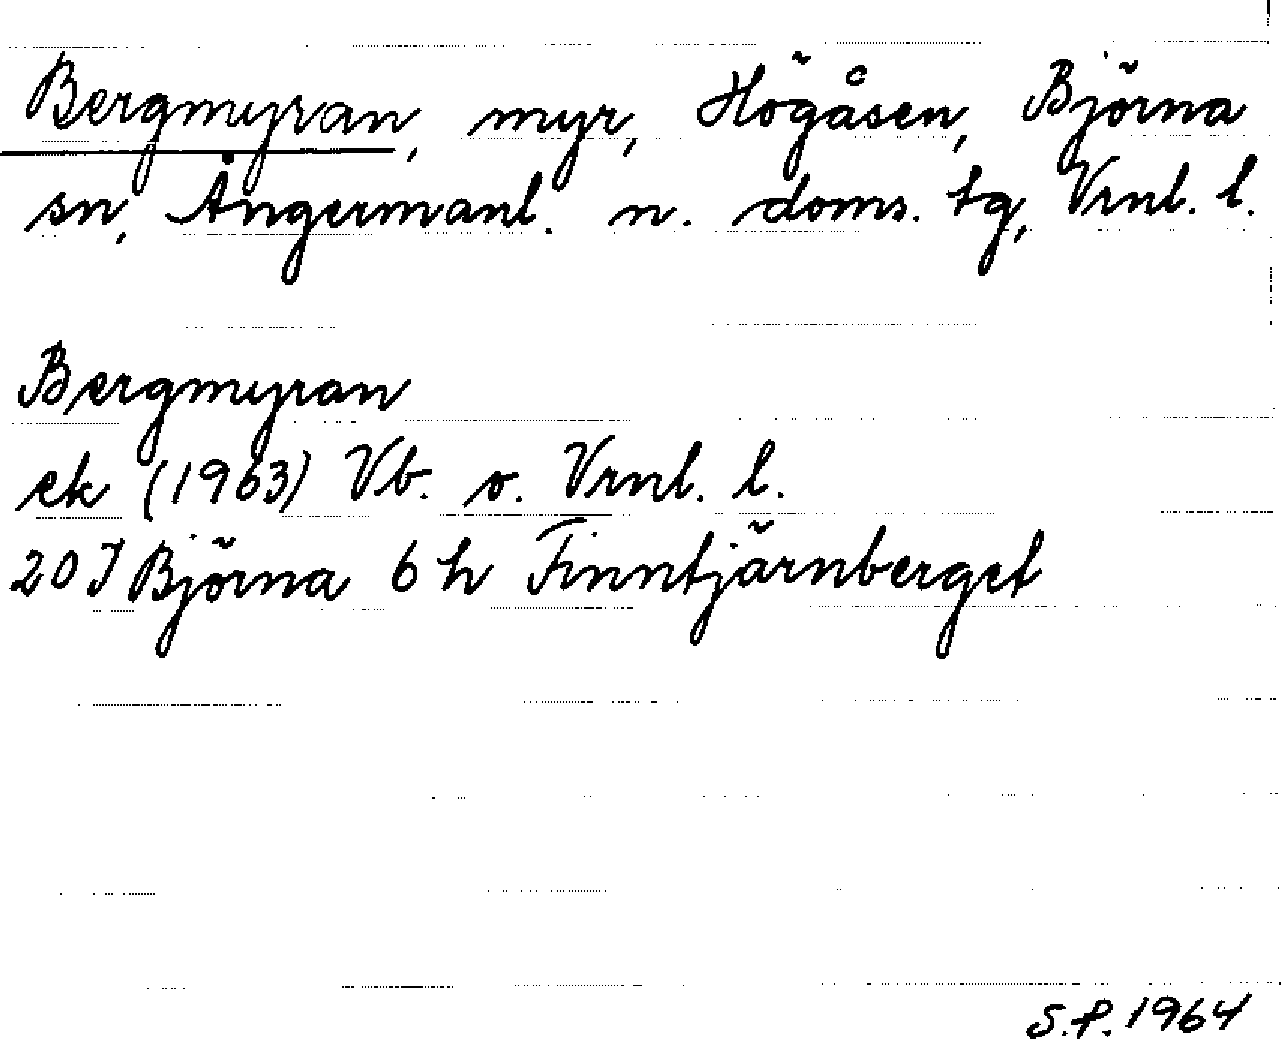 Bergmyran, myr, Högåsen, Björna
sn, Ångermanl. n. doms. tg, Vrnl. l.
Bergmyran
ek (1963) Vb. o. Vrnl. l.
20 J Björna 6 h Finntjärnberget
S.P. 1964